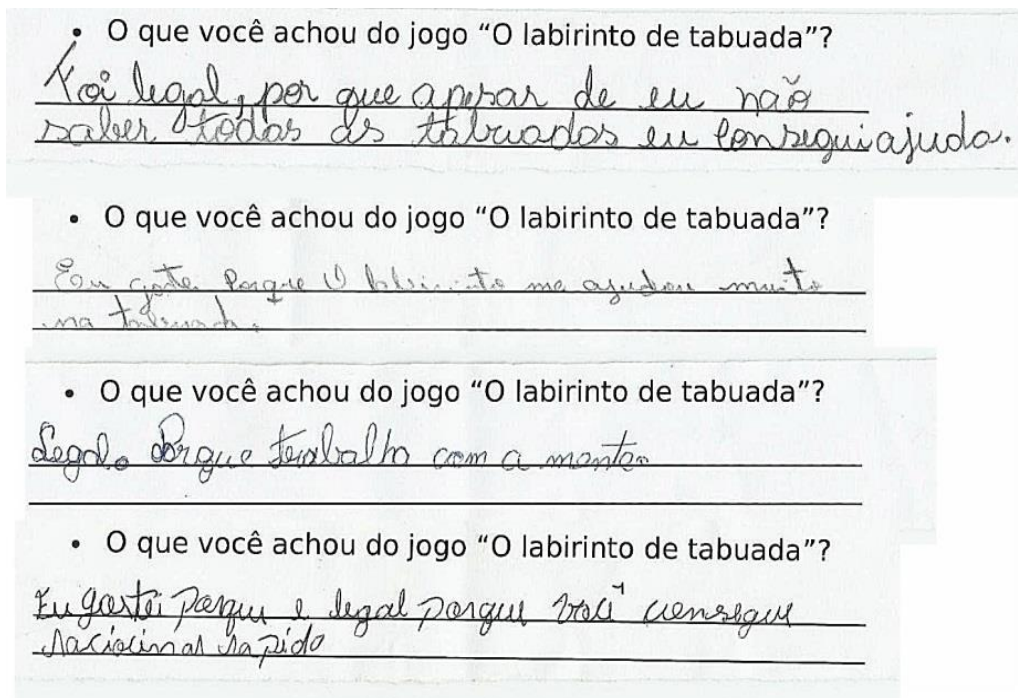 • O que você achou do jogo “O labirinto de tabuada”?
Foi legal, por que apesar de eu não
saber todas as tabuadas eu consegui ajuda.
• O que você achou do jogo “O labirinto de tabuada”?
Eu gostei Porque O labirinto me ajudou muito
na tabuada.
• O que você achou do jogo “O labirinto de tabuada”?
Legal. Porque trabalho com a mente.
• O que você achou do jogo “O labirinto de tabuada”?
Eu gostei porqu e legal porque você consegue
raciocinar rapido